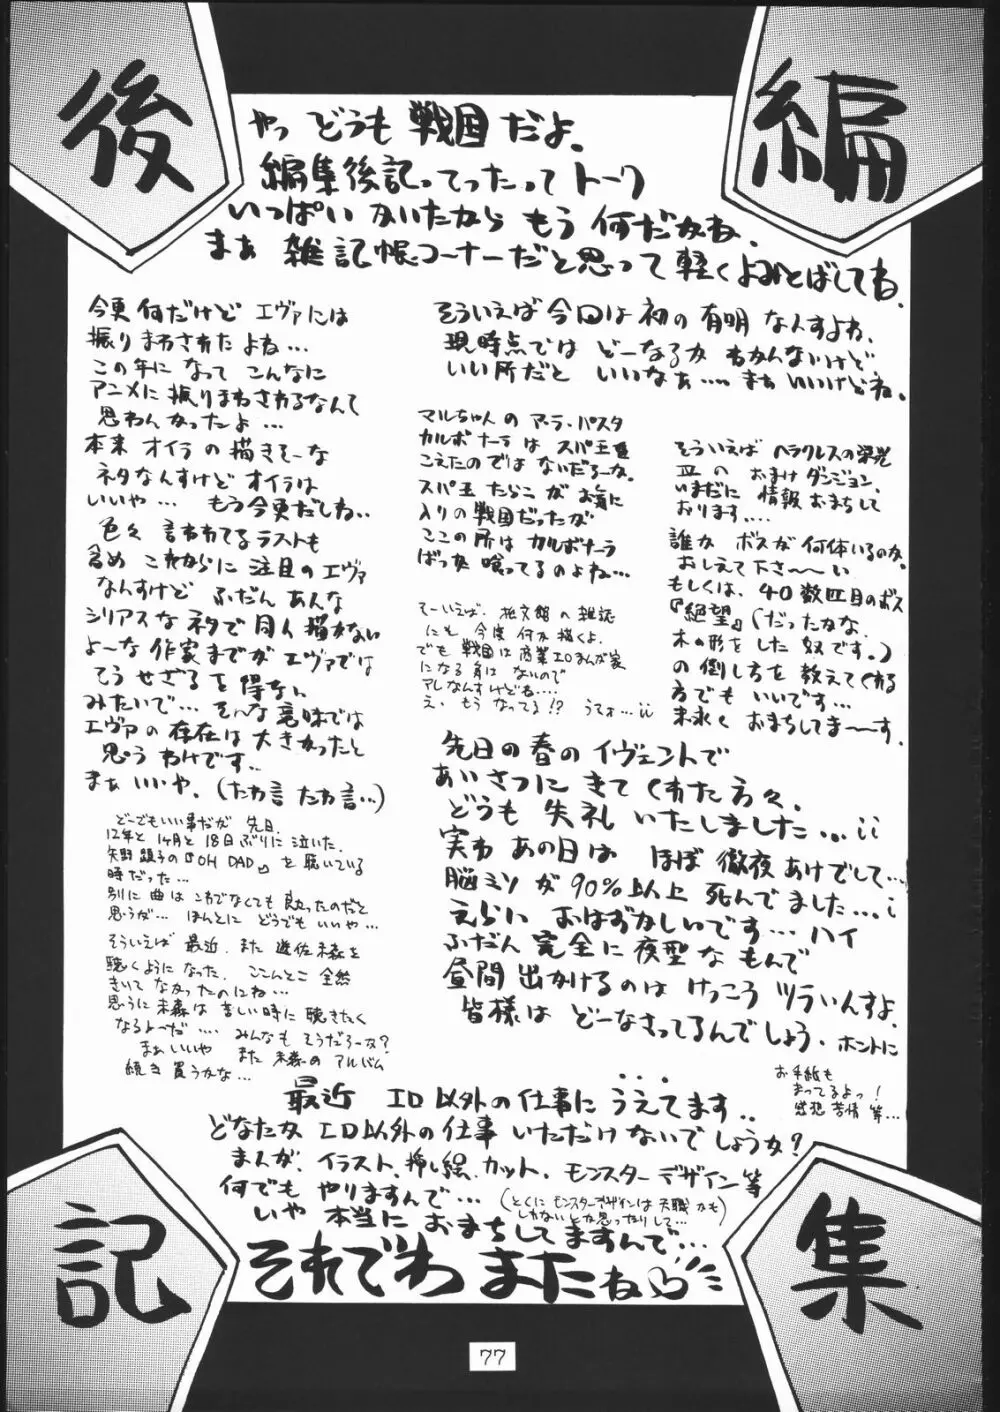 編
集
後
記
やっ どうも 戦国 だよ。
編集後記ってったって トーク
いっぱい かいたから もう 何だかね、
まぁ 雑記帳コーナーだと思って 軽く よみとばしてね。
今更 何だけど エヴァには
振りまわされた よね…
この年に なって こんなに
アニメに 振りまわされるなんて
思わんかったよ…
本来 オイラの 描きそーな
ネタなんすけど オイラは
いいや… もう今更だしね‥
色々 言われてるラストも
含め これからに 注目の エヴァ
なんすけど ふだん あんな
シリアスな ネタで 同人 描かない
よーな 作家までが エヴァでは
そう せざる を 得ない
みたいで… そんな意味では
エヴァの存在は 大きかったと
思う わけです‥
まぁ いいや、(たわ言 たわ言…)
どーでもいい事だが 先日、
12年と 1ヶ月と 18日ぶりに 泣いた、
矢野顕子の『OH DAD』を 聴いている
時だった…
別に 曲は これでなくても 良かったのだと
思うが… ほんとに どうでも いいや…
そういえば 最近、また 遊佐未森を
聴くようになった、ここんとこ 全然
きいて なかったのにね…
思うに 未森は 苦しい時に 聴きたく
なるよーだ…. みんなも そうだろーか?
まぁ いいや また 未森の アルバム
続き 買うかな…
そういえば 今回は 初の 有明 なんすよね、
現時点では どーなるか わかんないけど
いい所だと いいなぁ…. まぁ いいけどね。
マルちゃんの アーラ・パスタ
カルボナーラは スパ王を
こえたのでは ないだろーか。
スパ王 たらこ が お気に
入りの 戦国だったが
ここの所は カルボナーラ
ばっか 喰ってるのよね…
そーいえば、桃文館の雑誌
にも 今度 何か 描くよ、
でも 戦国は 商業エロまんが家
になる 気は ないので
アレなんすけどね…
え、もう なってる!? うそぉ…ii
そういえば ヘラクレスの栄光
Ⅲの おまけ ダンジョン、
いまだに 情報 おまちして
おります….
誰か ボスが 何体いるのか、
おしえて 下さ〜〜い
もしくは、40数匹目のボス
『絶望』(だったかな、
木の形を した 奴です。)
の 倒し方を 教えてくれる
方でも いいです…
末永く おまちしてま〜〜す。
先日の春の イヴェントで
あいさつに きて くれた方々、
どうも 失礼 いたしました…ii
実わ あの日は ほぼ 徹夜 あけでして…
脳ミソが 90%以上 死んでました…i
えらい おはずかしいです… ハイ
ふだん 完全に 夜型な もんで
昼間 出かけるのは けっこう ツラいんすよ、
皆様は どーなさってるんでしょう、ホントに
…
お手紙も
まってるよっ!
感想 苦情 等…
最近 エロ以外の仕事に うえてます‥
どなたか エロ以外の 仕事 いただけ ないでしょうか?
まんが、イラスト、挿し絵、カット、モンスターデザイン等
何でも やりますんで…
(とくに モンスターデザインは 天職 かも
しれない とか思ったりして…)
いや 本当に おまちしてますんで…
それでわ またね
77